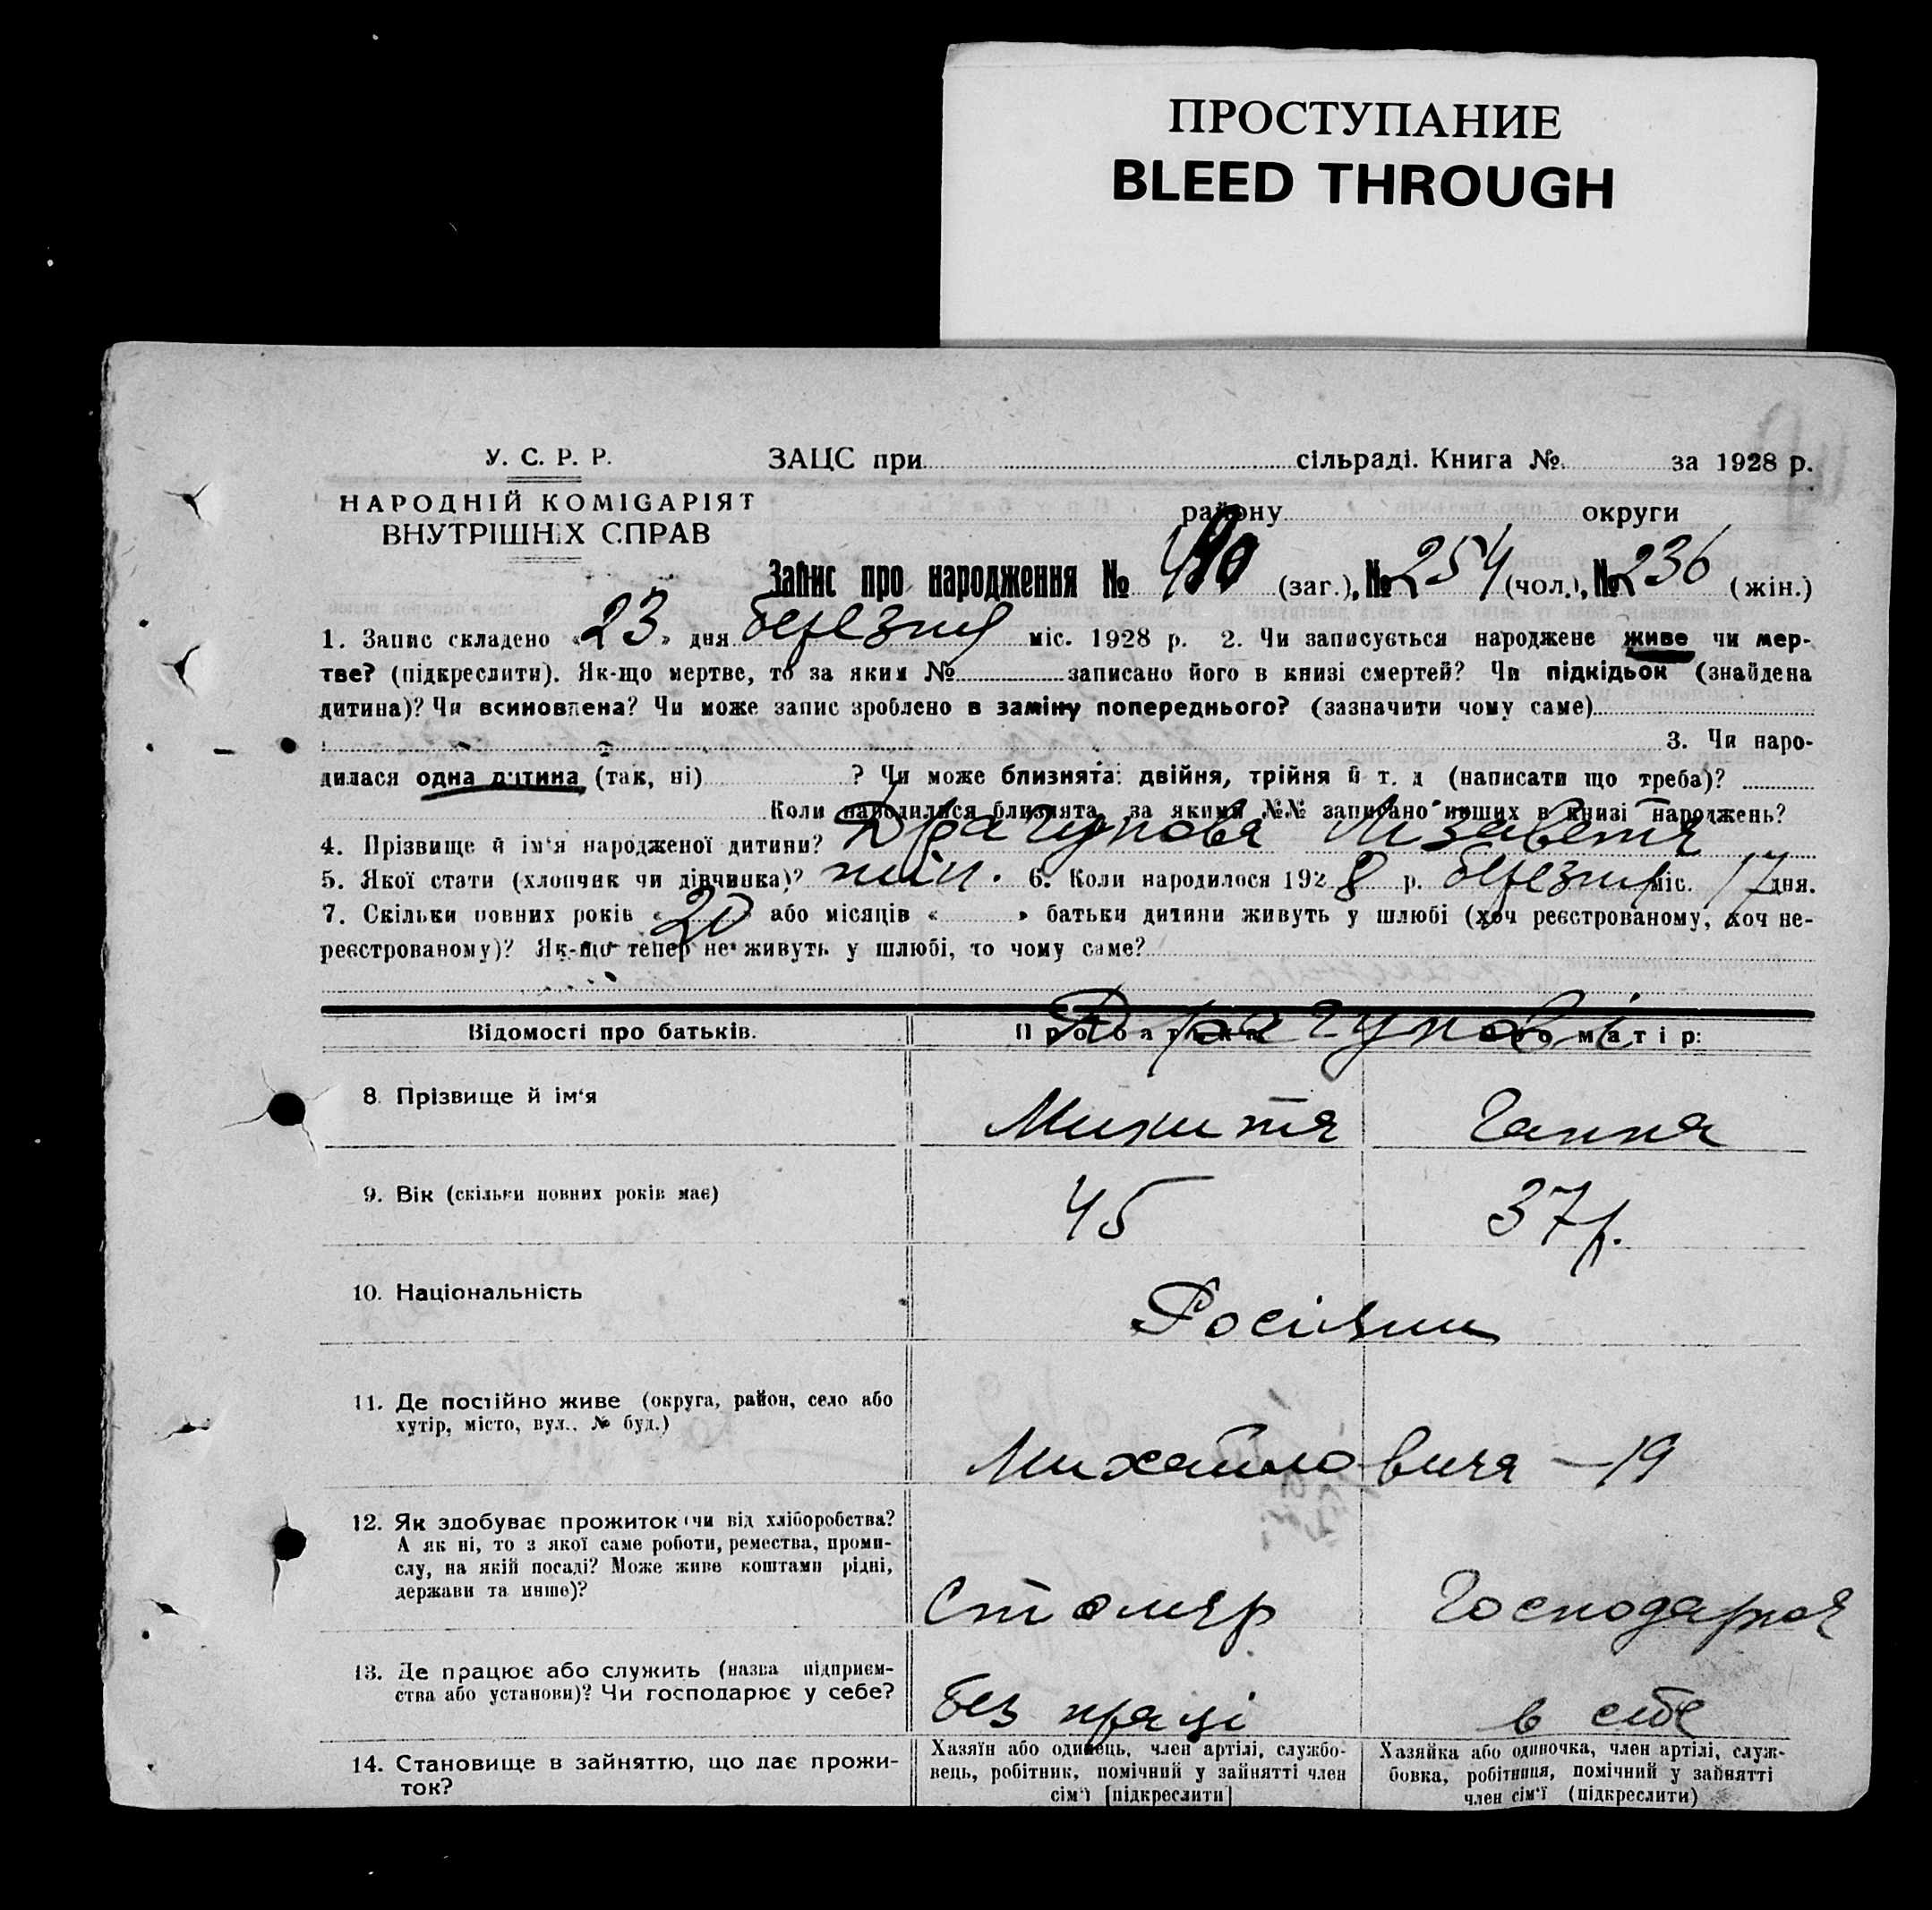 ПРОСТУПАНИЕ
BLEED THROUGH
У. С. Р. Р.
ЗАЦС при сільраді. Книга № за 1928 р.
НАРОДНІЙ КОМІСАРІЯТ
ВНУТРІШНІХ СПРАВ
району округи
Запис про народження № 490 (заг.), № 254 (чол.), № 236 (жін.)
1. Запис складено « 23 » дня березня міс. 1928 р. 2. Чи записується народжене живе чи мер-
тве? (підкреслити). Як-що мертве, то за яким № записано його в книзі смертей? Чи підкідьок (знайдена
дитина)? Чи всиновлена? Чи може запис зроблено в заміну попереднього? (зазначити чому саме)
3. Чи наро-
дилася одна дитина (так, ні) ? Чи може близнята: двійня, трійня й т. д (написати що треба)?
Коли народилися близнята, за якими №№ записано инших в книзі народжень?
4. Прізвище й ім'я народженої дитини? Драгунова Лізавета
5. Якої стати (хлопчик чи дівчинка)? жін. 6. Коли народилося 1928 р. березня міс. 17 дня.
7. Скільки повних років « 20 » або місяців « » батьки дитини живуть у шлюбі (хоч реєстрованому, хоч не-
реєстрованому)? Як-що тепер не живуть у шлюбі, то чому саме?
Драгунові
Відомості про батьків. Про батька: Про матір:
8. Прізвище й ім'я Микита Ганна
9. Вік (скільки повних років має) 45 37 р.
10. Національність Росіяни
11. Де постійно живе (округа, район, село або
хутір, місто, вул., № буд.)
Михайловича — 19
12. Як здобуває прожиток (чи від хліборобства?
А як ні, то з якої саме роботи, ремества, проми-
слу, на якій посаді? Може живе коштами рідні,
держави та инше)?
Столяр Господарка
13. Де працює або служить (назва підприєм-
ства або установи)? Чи господарює у себе?
без праці в себе
14. Становище в зайняттю, що дає прожи-
ток?
Хазяїн або одинець, член артілі, службо-
вець, робітник, помічний у зайнятті член
сім'ї [підкреслити]
Хазяйка або одиночка, член артілі, служ-
бовка, робітниця, помічний у зайнятті
член сім'ї (підкреслити)